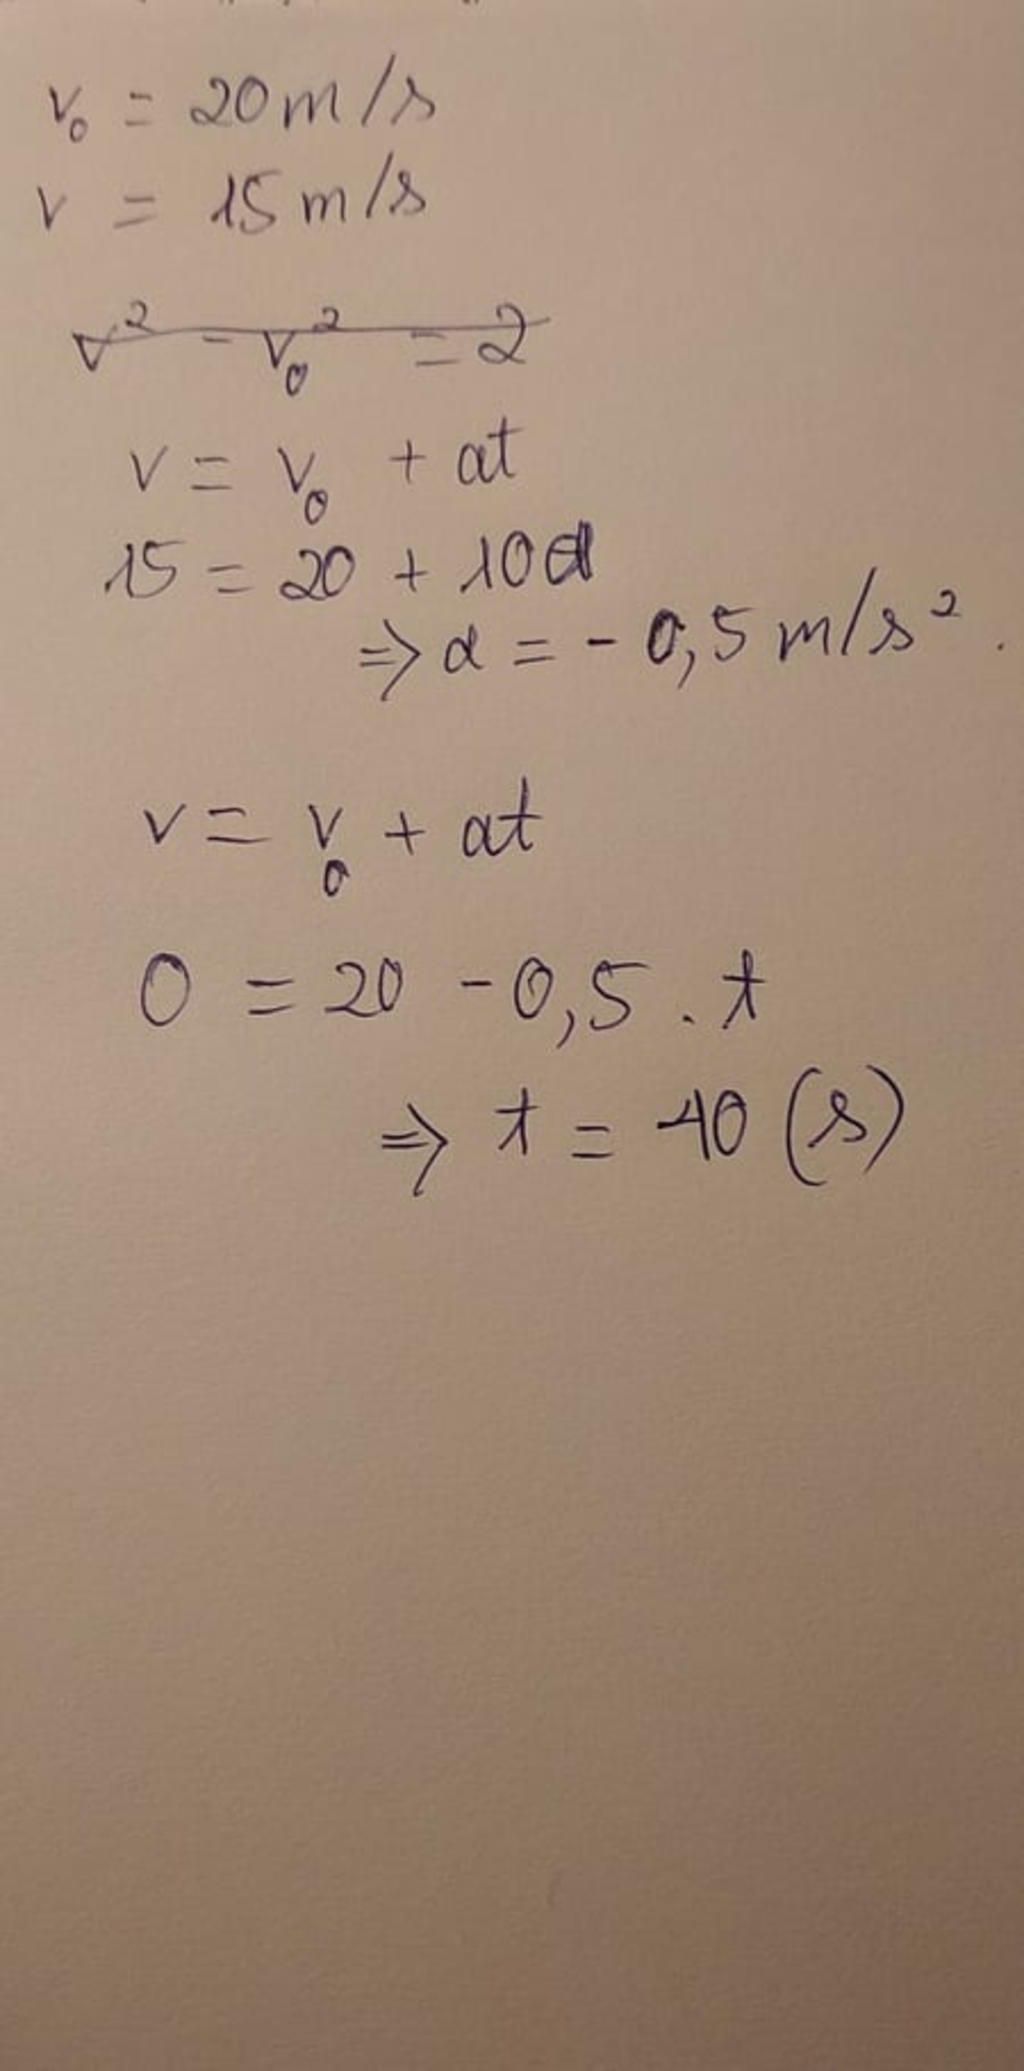 v₀ = 20 m/s
v = 15 m/s
v² - v₀² = 2
v = v₀ + at
15 = 20 + 10a
⇒ a = - 0,5 m/s².
v = v₀ + at
0 = 20 - 0,5 . t
⇒ t = 40 (s)